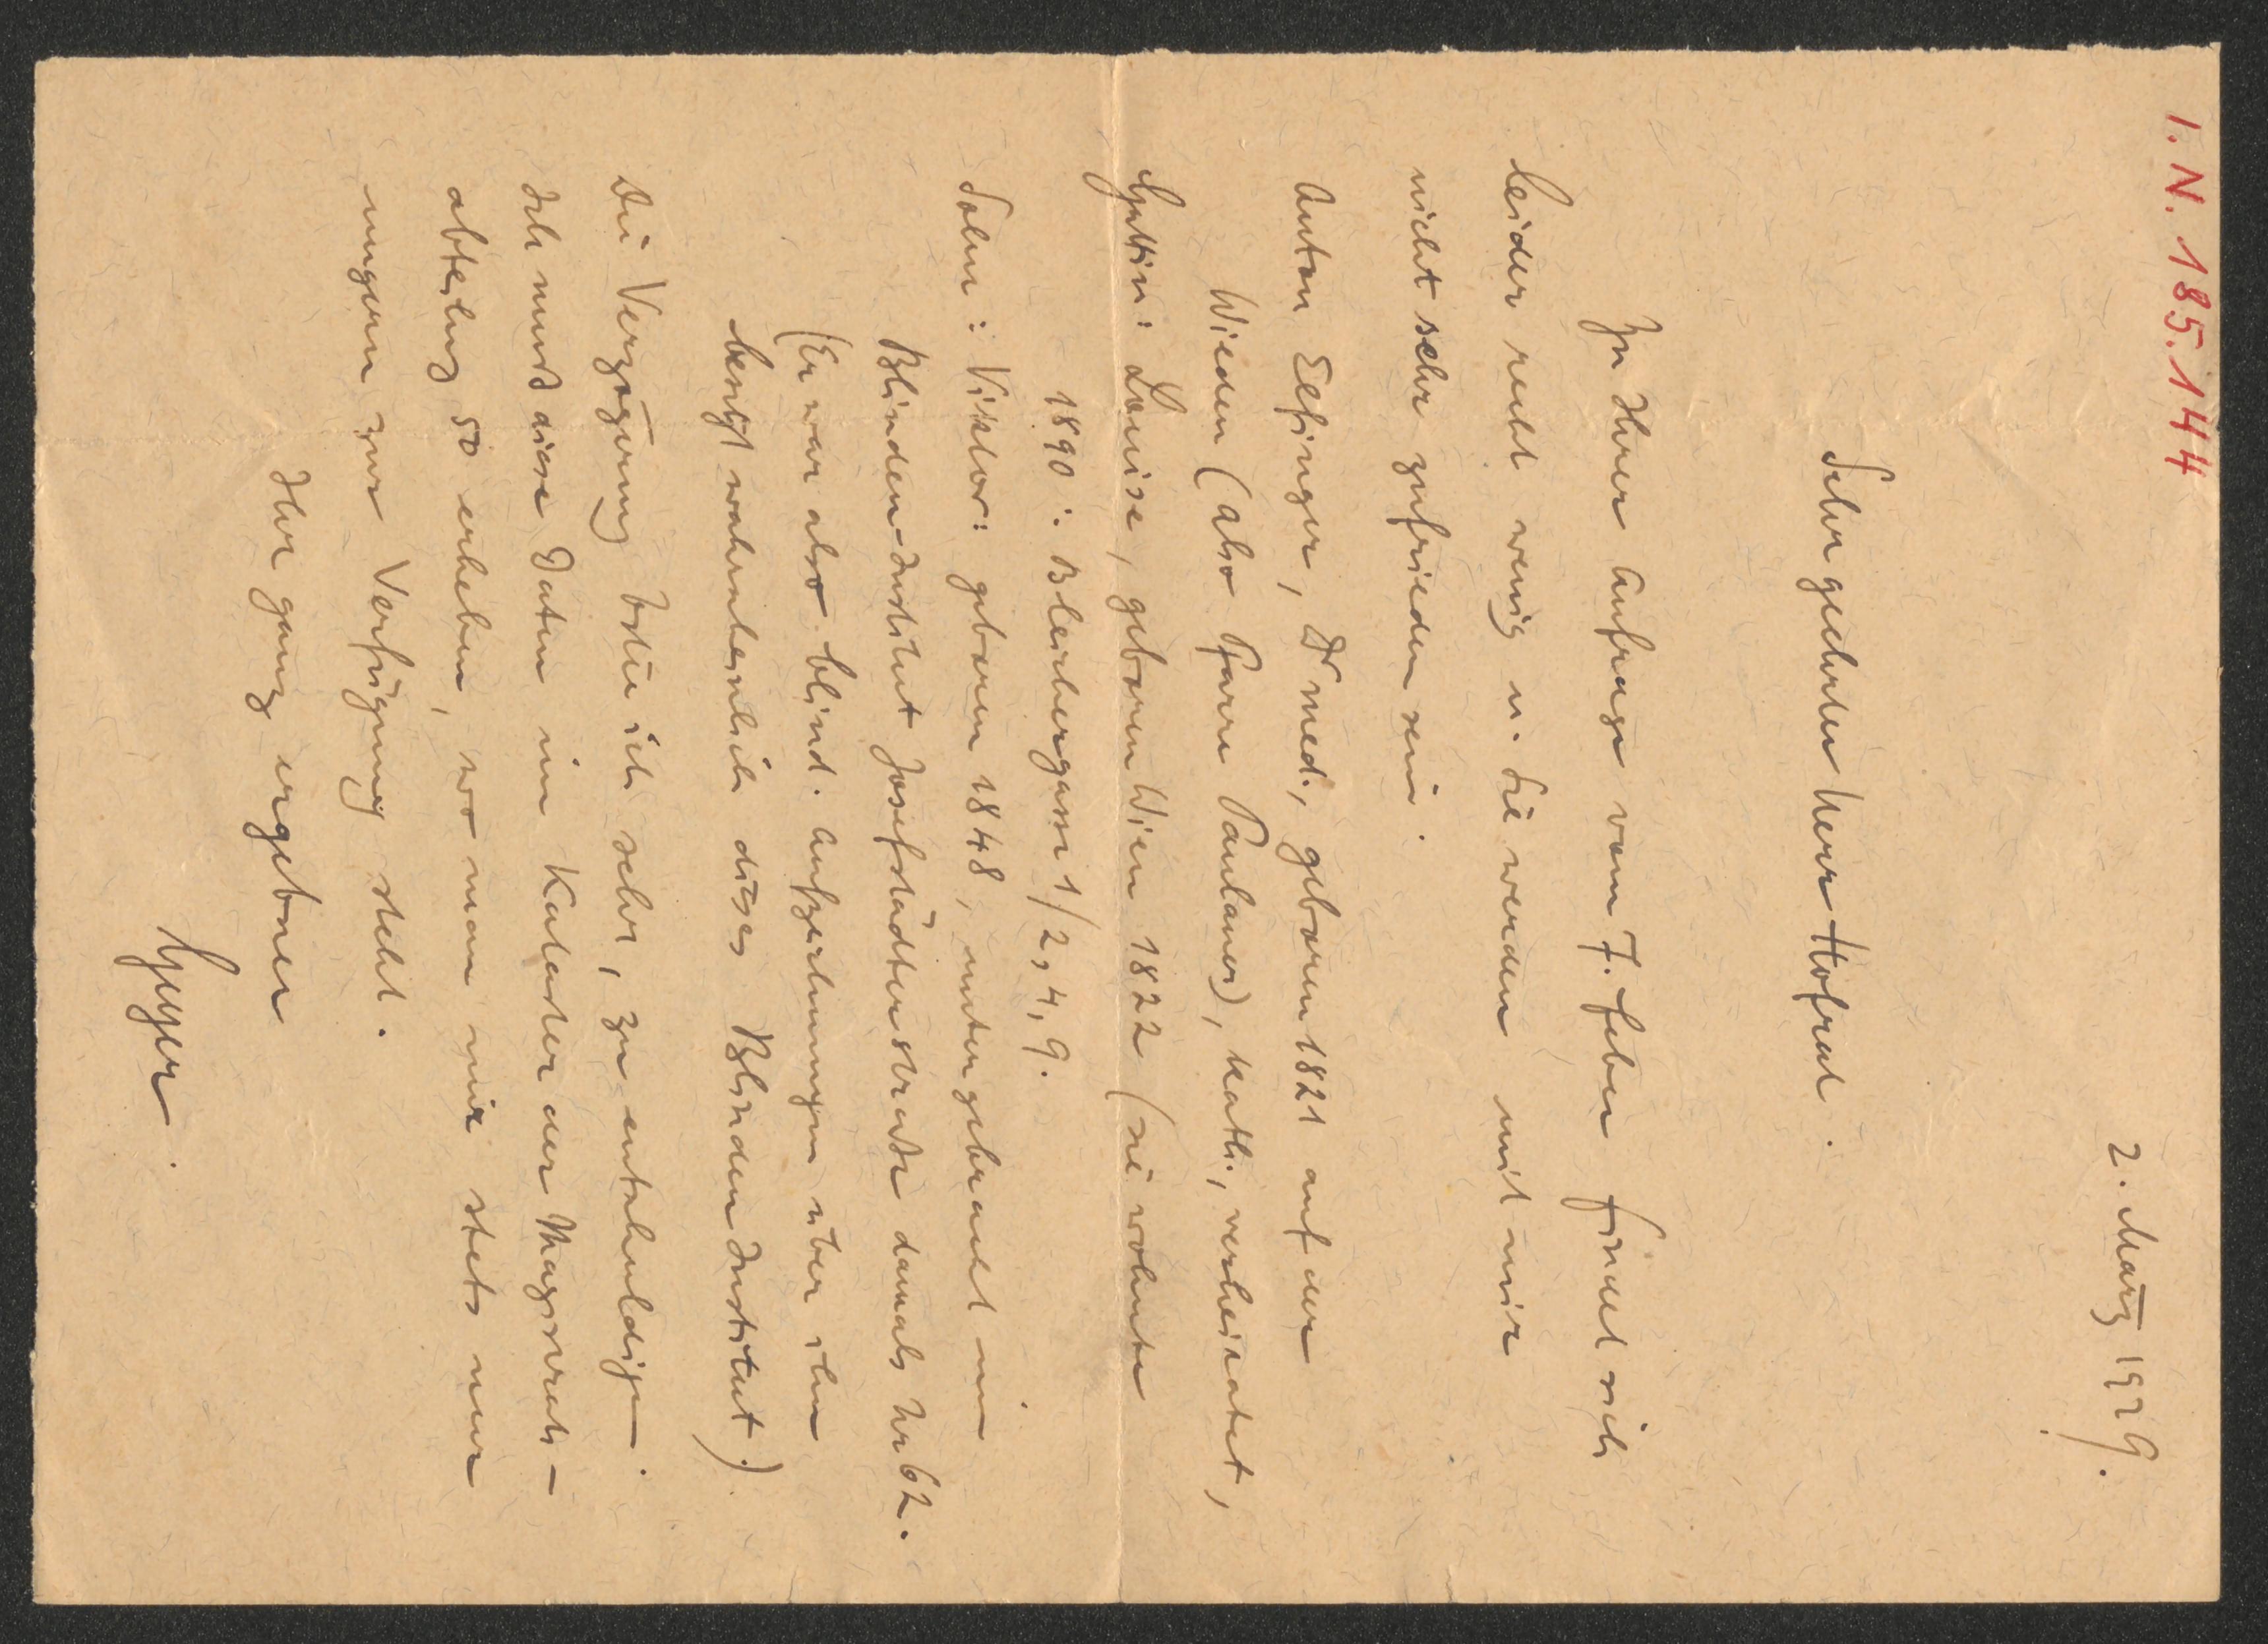 I. N. 185.144
2. März 1929.
Sehr geehrter Herr Hofrat.
Zu Ihrer Anfrage vom 7. feber findet sich
leider recht wenig u. Sie werden mit mir
nicht sehr zufrieden sein.
Anton Elfinger, Dr med., geboren 1821 auf der
Wieden (also Pfarre Paulaner), kath., verheiratet,
Gattin: Louise, geboren Wien 1822 (sie wohnte
1890: Bleichergasse 1/2, 4, 9.
Sohn: Viktor: geboren 1848, untergebracht im
Blinden-Institut Josefstädterstrasse damals Nr 62.
(Er war also blind. Aufzeichnungen über ihn
besitzt wahrscheinlich dieses Blinden Institut.)
Die Verzögerung bitte ich sehr, zu entschuldigen.
Ich musste diese Daten im Kataster der Magistrats-
abteilung 50 erheben, wo man mir stets nur
ungern zur Verfügung steht.
Ihr ganz ergebner
Gugger.